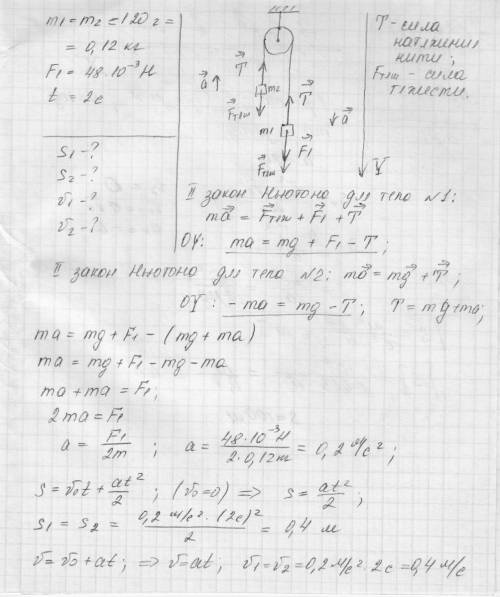 m₁ = m₂ = 120 г =
= 0,12 кг
F₁ = 48·10⁻³ Н
t = 2c
S₁ - ?
S₂ - ?
v₁ - ?
v₂ - ?
a⃗
T⃗
m₂
F⃗тяж
T⃗
m₁
a⃗
F⃗₁
F⃗тяж
Y
T - сила
натяжения
нити;
Fтяж - сила
тяжести.
II закон Ньютона для тела №1:
ma⃗ = F⃗тяж + F⃗₁ + T⃗
OY: ma = mg + F₁ - T;
II закон Ньютона для тела №2: ma⃗ = mg⃗ + T⃗;
OY: -ma = mg - T; T = mg + ma;
ma = mg + F₁ - (mg + ma)
ma = mg + F₁ - mg - ma
ma + ma = F₁;
2ma = F₁
a = F₁/2m; a = 48·10⁻³Н/2·0,12кг = 0,2 м/с²;
S = v₀t + at²/2; (v₀=0) => S = at²/2;
S₁ = S₂ = 0,2 м/с²·(2c)²/2 = 0,4 м
v = v₀ + at; => v = at; v₁ = v₂ = 0,2 м/с²·2c = 0,4 м/с